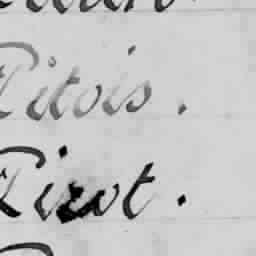 Pitois.
Pizot.